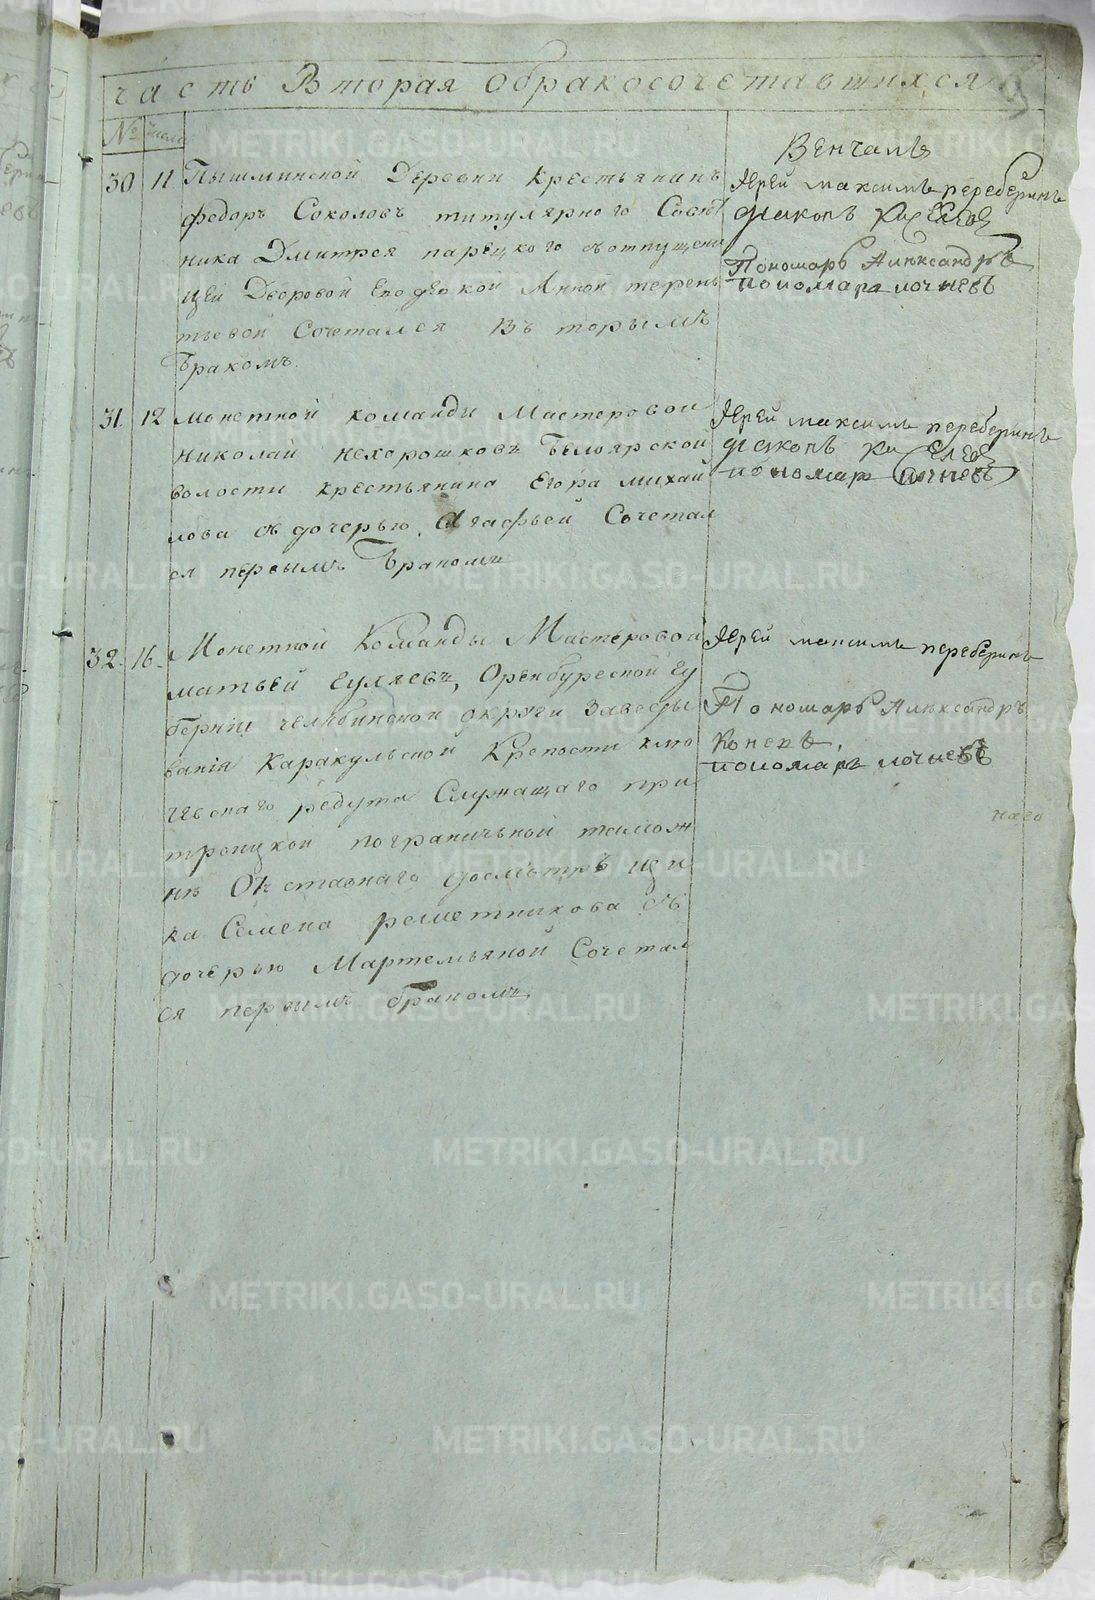 часть Вторая обракосочетавшихся
№ число
Венчалъ
30 11 Пышминской Деревни крестьянинъ
федоръ Соколовъ титулярного Совѣт
ника Дмитрея съотпущени
цей Дворовой Анной терень
тьевой Сочетался Въторымъ
Бракомъ.
Иерей максимъ переберинъ
диаконъ
Пономарь Александръ
пономарь
31. 12 монетной команды Мастеровой
николай нехорошковъ Белоярской
волости крестьянина Егора михай
лова съ дочерью Агафьей Сочетал
ся первымъ Бракомъ
Иерей максимъ переберинъ
диаконъ
пономарь
32. 16. Монетной Команды Мастеровой
матвей гуляевъ, Оренбургской гу
берніи челябинской округи Заведы
ванія Каракульской Крепости клю
чевскаго редута Служащаго при
троицкой пограничьной тамож
не Отставнаго досмотрьщи
ка Семена решетникова съ
дочерью Мартемьяной Сочетал
ся первымъ бракомъ
Иерей максимъ переберинъ
Пономарь Александръ
Коневъ,
пономарь
наго
METRIKI.GASO-URAL.RU